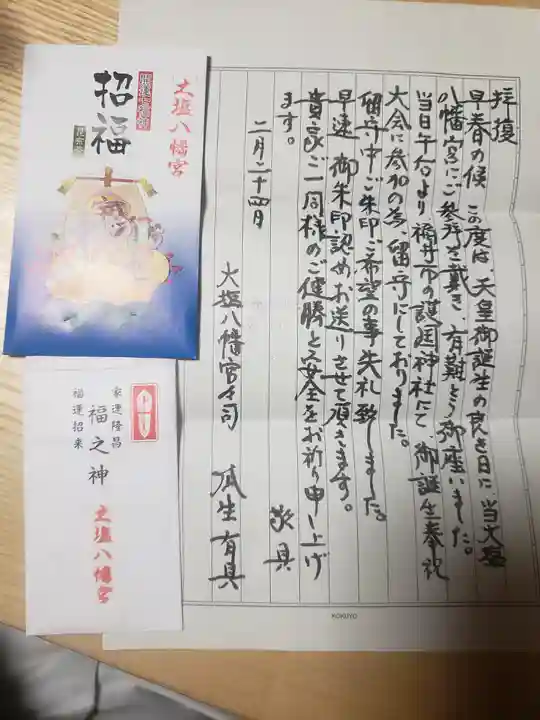 拝復
早春の候 この度は、天皇御誕生の良き日に、当大塩
八幡宮にご参拝を戴き、有難とう御座いました。
当日午后より、福井市の護国神社にて、御誕生奉祝
大会に参加の為、留守にしておりました。
留守中、ご朱印ご希望の事、失礼致しました。
早速、御朱印認めお送りさせて頂きます。
貴家ご一同様のご健勝と安全をお祈り申し上げ
ます。
敬具
二月二十四日
大塩八幡宮宮司 瓜生有具
KOKUYO
大塩八幡宮
招福
家運隆昌
福之神
福運招来
大塩八幡宮